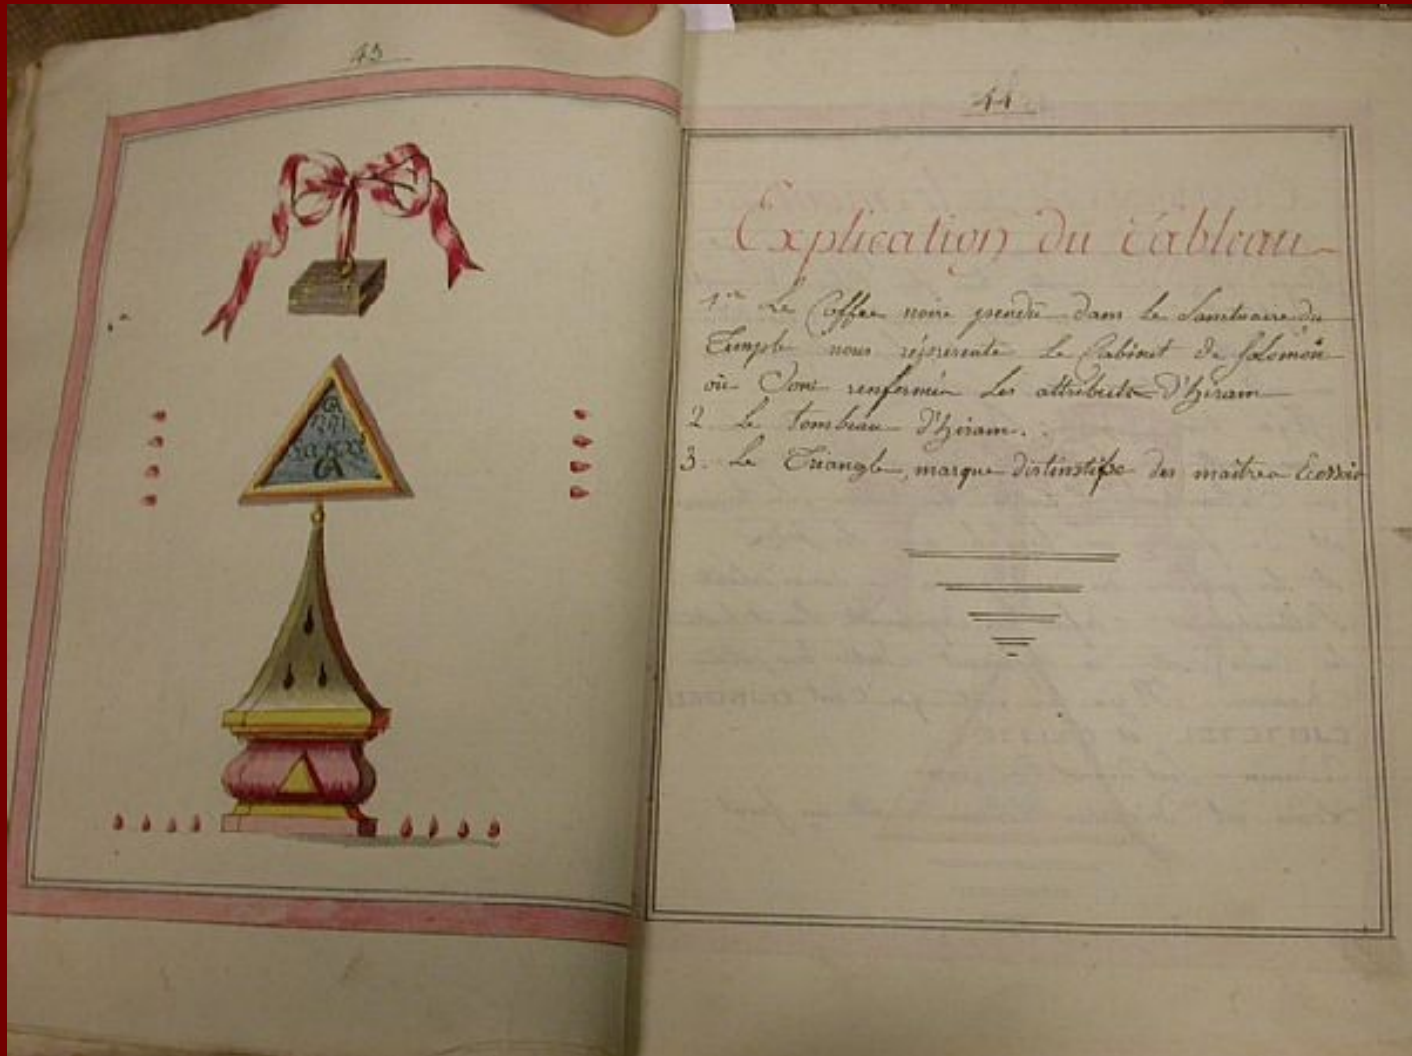 43
44
Explication du Tableau
1º Le Coffre noire pendû dans le Sanctuaire du
Temple nous réprésente le Cabinet de Salomon
où Sont renfermés les attributs d'hiram
2. Le tombeau d'hiram.
3. Le Triangle, marque distinstifve des maitres Ecossois